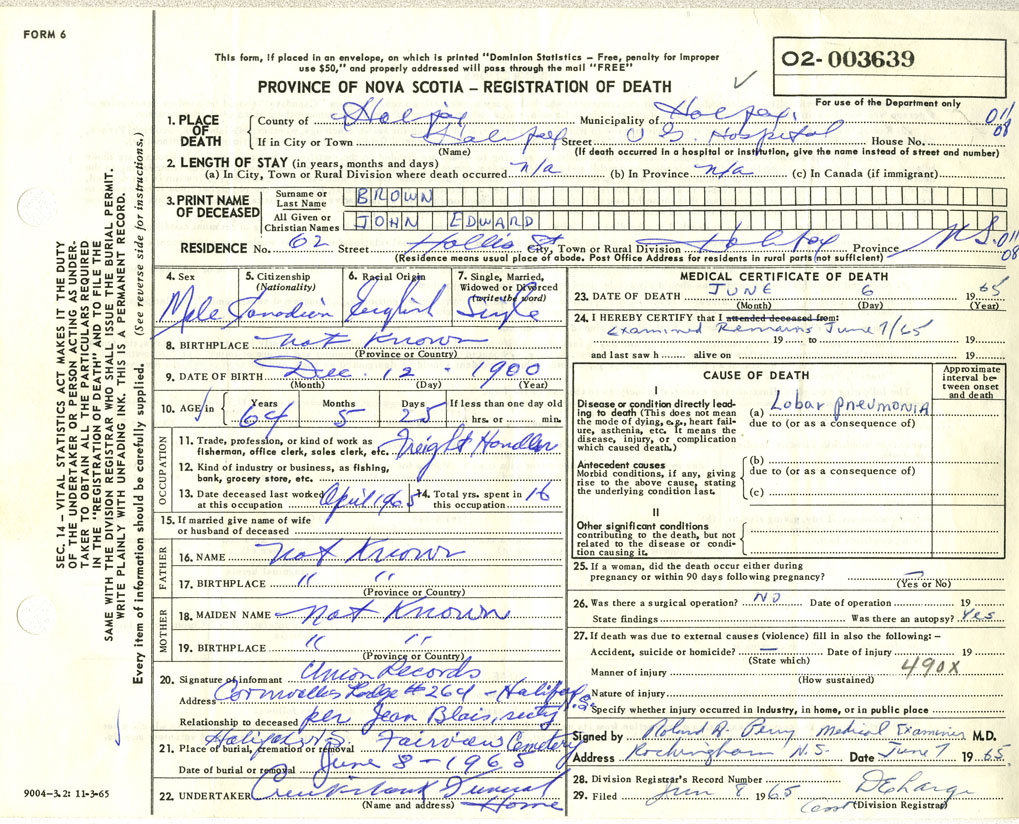 FORM 6
This form, if placed in an envelope, on which is printed "Dominion Statistics – Free, penalty for improper
use $50," and properly addressed will pass through the mail "FREE"
O2-003639
For use of the Department only
PROVINCE OF NOVA SCOTIA – REGISTRATION OF DEATH
SEC. 14 – VITAL STATISTICS ACT MAKES IT THE DUTY
OF THE UNDERTAKER OR PERSON ACTING AS UNDER-
TAKER TO OBTAIN ALL THE PARTICULARS REQUIRED
IN THE "REGISTRATION OF DEATH" AND TO FILE THE
SAME WITH THE DIVISION REGISTRAR WHO SHALL ISSUE THE BURIAL PERMIT.
WRITE PLAINLY WITH UNFADING INK. THIS IS A PERMANENT RECORD.
Every item of information should be carefully supplied. (See reverse side for instructions.)
1. PLACE OF DEATH
County of Halifax Municipality of Halifax, 011
If in City or Town Halifax Street Hospital House No. 08
(Name) (If death occurred in a hospital or institution, give the name instead of street and number)
2. LENGTH OF STAY (in years, months and days)
(a) In City, Town or Rural Division where death occurred n/a (b) In Province n/a (c) In Canada (if immigrant)
3. PRINT NAME OF DECEASED
Surname or Last Name BROWN
All Given or Christian Names JOHN EDWARD
RESIDENCE No. 62 Street Hollis St City, Town or Rural Division Halifax Province N.S. 011
(Residence means usual place of abode. Post Office Address for residents in rural parts not sufficient) 08
4. Sex 5. Citizenship (Nationality) 6. Racial Origin 7. Single, Married, Widowed or Divorced (write the word)
Male Canadian English Single
8. BIRTHPLACE Not Known
(Province or Country)
9. DATE OF BIRTH Dec. 12 - 1900
(Month) (Day) (Year)
10. AGE in Years Months Days If less than one day old
64 5 25 hrs. or min.
OCCUPATION
11. Trade, profession, or kind of work as
fisherman, office clerk, sales clerk, etc. Freight Handler
12. Kind of industry or business, as fishing,
bank, grocery store, etc.
13. Date deceased last worked at this occupation April 1965 14. Total yrs. spent in this occupation 16
15. If married give name of wife
or husband of deceased
FATHER
16. NAME Not Known
17. BIRTHPLACE " "
(Province or Country)
MOTHER
18. MAIDEN NAME Not Known
19. BIRTHPLACE " "
(Province or Country)
20. Signature of informant Union Records
Address Cornwallis Lodge #264 - Halifax
Relationship to deceased per Jean Blais, secty
21. Place of burial, cremation or removal Halifax N.S. Fairview Cemetery
Date of burial or removal June 8 - 1965
22. UNDERTAKER Cruikshank Funeral Home
(Name and address)
9004-3.2: 11-3-65
MEDICAL CERTIFICATE OF DEATH
23. DATE OF DEATH JUNE 6 1965
(Month) (Day) (Year)
24. I HEREBY CERTIFY that I attended deceased from:
Examined Remains June 7/65
19 to 19
and last saw h alive on 19
CAUSE OF DEATH
Approximate interval between onset and death
I
Disease or condition directly lead-
ing to death (This does not mean
the mode of dying, e.g., heart fail-
ure, asthenia, etc. It means the
disease, injury, or complication
which caused death.)
(a) Lobar pneumonia
due to (or as a consequence of)
Antecedent causes
Morbid conditions, if any, giving
rise to the above cause, stating
the underlying condition last.
(b)
due to (or as a consequence of)
(c)
II
Other significant conditions
contributing to the death, but not
related to the disease or condi-
tion causing it.
25. If a woman, did the death occur either during
pregnancy or within 90 days following pregnancy? –
(Yes or No)
26. Was there a surgical operation? NO Date of operation 19
State findings Was there an autopsy? Yes
27. If death was due to external causes (violence) fill in also the following: –
Accident, suicide or homicide? – Date of injury 19
(State which)
Manner of injury 490X
(How sustained)
Nature of injury
Specify whether injury occurred in Industry, in home, or in public place
Signed by Roland R. Perry Medical Examiner M.D.
Address Rockingham N.S. Date June 7 1965
28. Division Registrar's Record Number
29. Filed Jun 8 1965
(Division Registrar)